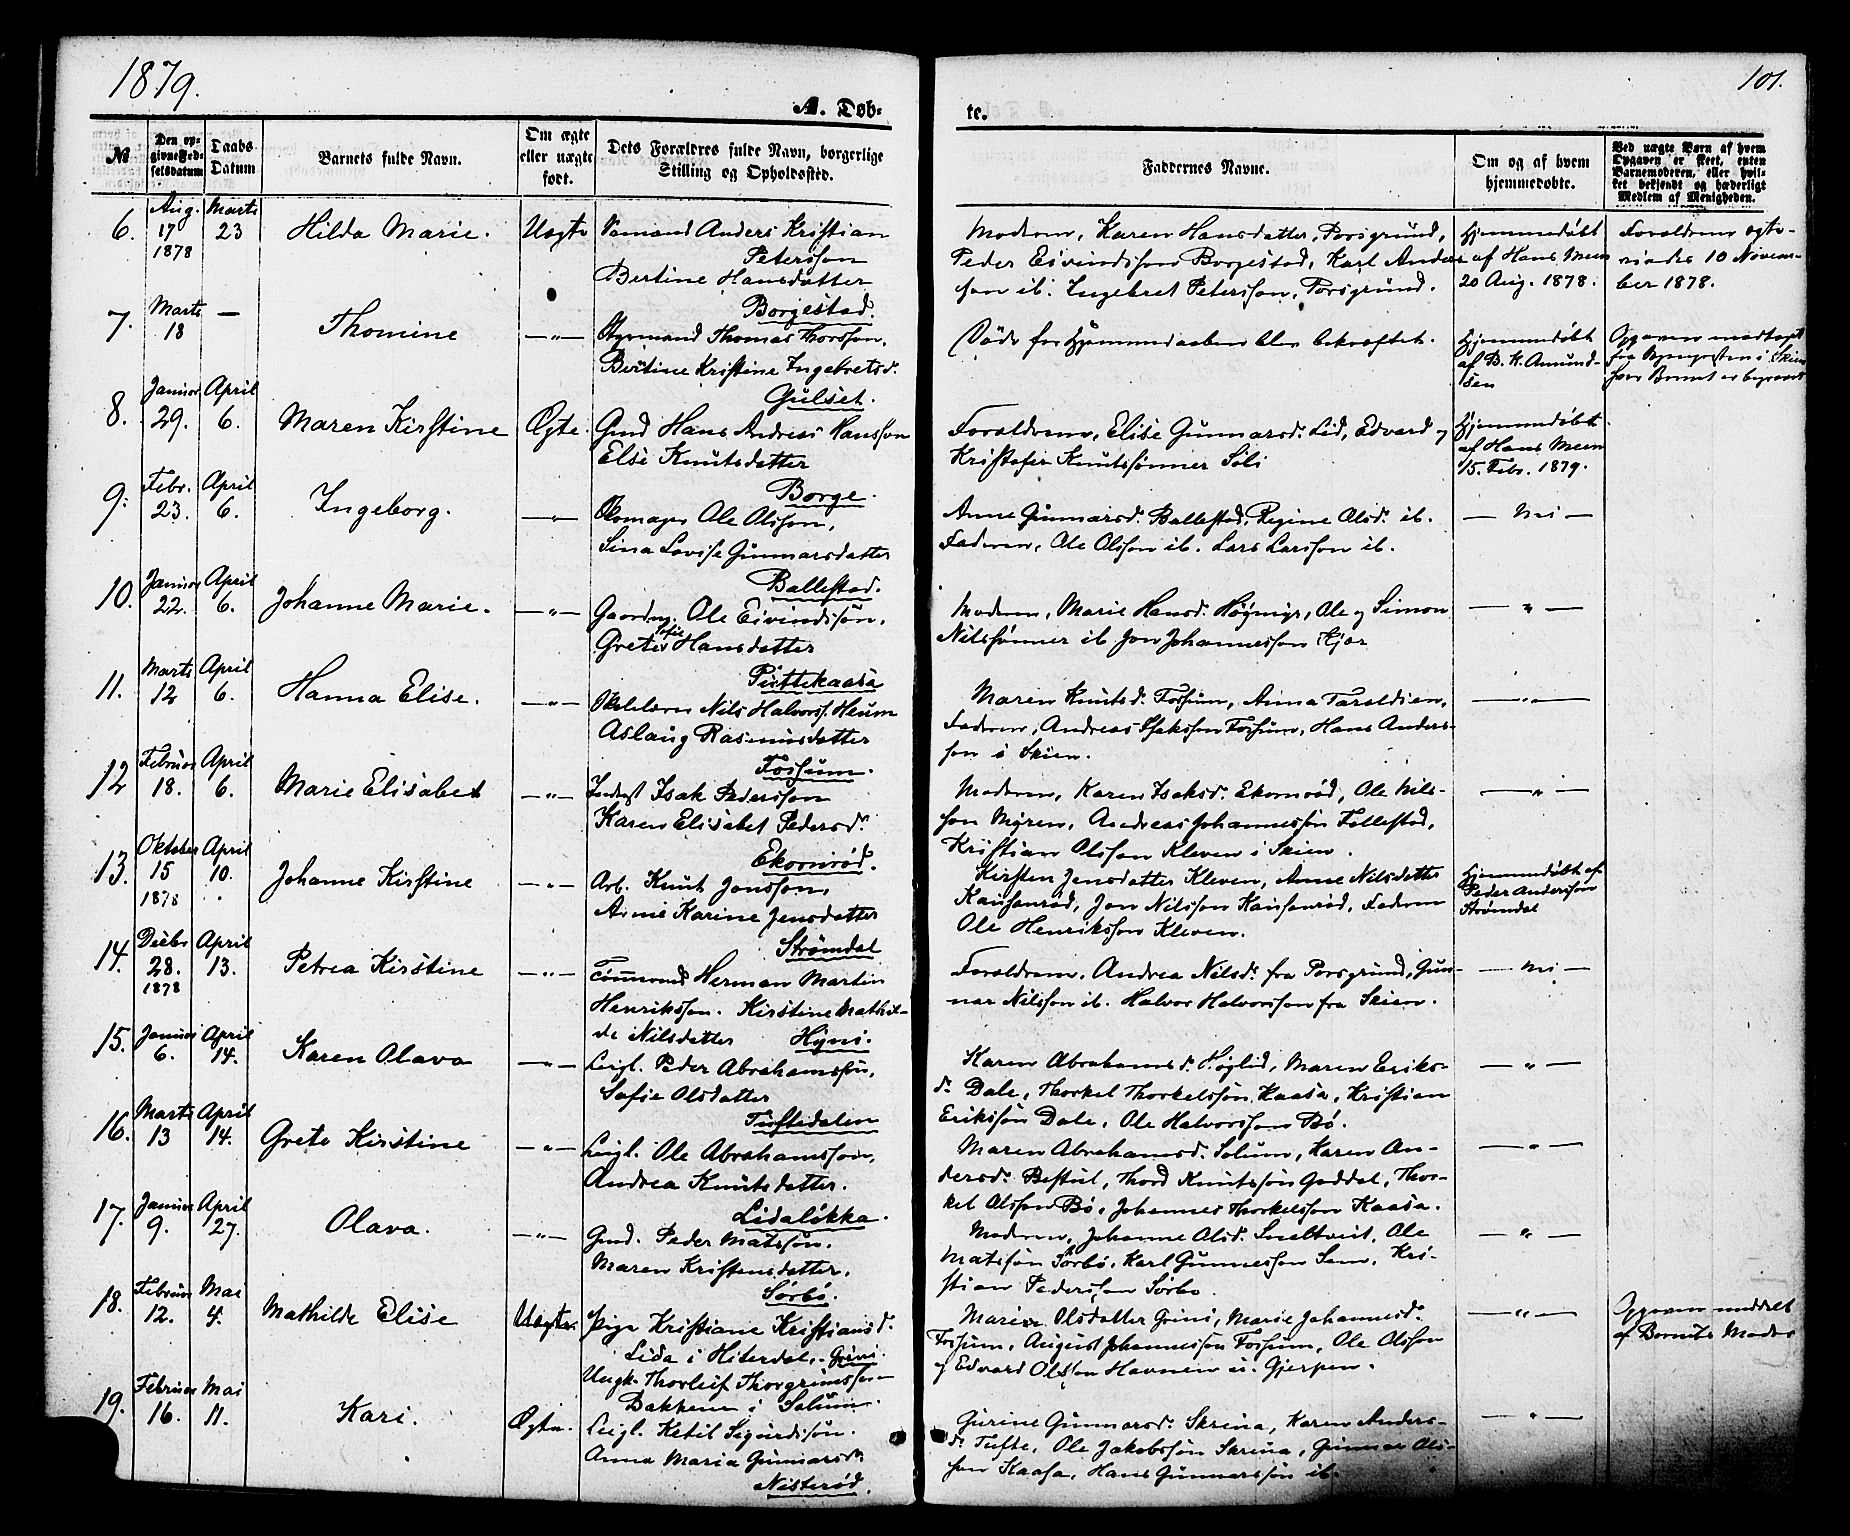 1879.
101.
A. Døb-
te.
№
Den op-
givne Fød-
selsdatum
Daabs
Datum
Barnets fulde Navn.
Om ægte
eller uægte
født.
Dets Forældres fulde Navn, borgerlige
Stilling og Opholdssted.
Faddernes Navne.
Om og af hvem
hjemmedøbte.
Ved uægte Børn af hvem
Opgaven er skeet, enten
Barnemoderen, eller hvil-
ket bekjendt og hæderligt
Medlem af Menigheden.
6.
Aug.
17
1878
Marts
23
Hilda Marie.
Uægte
Sømand Anders Kristian
Petersson
Bertine Hansdatter
Borgestad.
Moderen, Karen Hansdatter, Porsgrund,
Peder Eivindsson Borgestad, Karl Anders-
son ib. Ingebret Petersson, Porsgrund.
Hjemmedøbt
af Hans Meen
20 Aug. 1878.
Forældrene ægte-
viedes 10 Novem-
ber 1878.
7.
Marts
18
—
Thomine
—"—
Styrmand Thomas Thorsson,
Bertine Kristine Ingebretsd.
Gulset.
Døde før Hjemmedaaben blev bekræftet.
Hjemmedøbt
af B. K. Amund-
sen
Opgaven modtaget
fra Sognepresten i Skien
hvor Barnet er begravet
8.
Januar
29.
April
6.
Maren Kirstine
Ægte.
Gmd Hans Andreas Hansson
Else Knutsdatter
Borge.
Forældrene, Elise Gunnarsd. Lid, Edvard og
Kristofer Knutssønner Søli
Hjemmedøbt
af Hans Meen
15. Febr. 1879.
9.
Febr.
23.
April
6.
Ingeborg.
—"—
Skomager Ole Olsson,
Sina Lovise Gunnarsdatter
Ballestad.
Anne Gunnarsd. Ballestad, Regine Olsd. ib.
Faderen, Ole Olsson ib. Lars Larsson ib.
— Nei —
10.
Januar
22.
April
6.
Johanne Marie.
—"—
Gaardmg. Ole Eivindsson,
Grete Sofie Hansdatter
Puttekaasa
Moderen, Marie Hansd. Ole og Simon
Nilssønner ib Jon Johannesson Kjær
— " —
11.
Marts
12
April
6.
Hanna Elise.
—"—
Skolelærer Nils Halvorss. Heum
Aslaug Rasmusdatter
Fossum.
Maren Knutsd. Fossum, Anna Taraldsen,
Faderen, Andreas Isaksson Fossum, Hans Anders-
son i Skien.
— " —
12
Februar
18.
April
6.
Marie Elisabet
—"—
Inderst Isak Pedersson
Karen Elisabet Pedersd.
Ekornrød.
Moderen, Karen Isaksd. Ekornrød, Ole Nils-
son Myren, Andreas Johannesson Follestad,
Kristian Olsson Kleven i Skien.
— " —
13.
Oktober
15
1878
April
10.
Johanne Kirstine
—"—
Arb. Knut Jonsson,
Anne Karine Jensdatter
Strømdal
Kirsten Jensdatter Kleven, Anne Nilsdatter
Kansenrød, Jon Nilsson Kansenrød, Faderen
Ole Henriksson Kleven.
Hjemmedøbt af
Peder Andersson
Strømdal
14.
Decbr
28.
1878
April
13.
Petrea Kirstine
—"—
Tømmermd Herman Martin
Henriksson. Kirstine Mathil-
de Nilsdatter Hyni.
Forældrene, Andrea Nilsd. fra Porsgrund, Gun-
nar Nilsson ib. Halvor Halvorsson fra Skien.
— Nei —
15.
Januar
6.
April
14.
Karen Olava
—"—
Leigl. Peder Abrahamsson,
Sofie Olsdatter
Tuftedalen
Karen Abrahamsd. Høglid, Maren Eriks-
d. Dale, Thorkel Thorkelsson Kaasa, Kristian
Eriksson Dale, Ole Halvorsson Bø.
— " —
16.
Marts
13
April
14.
Grete Kirstine
—"—
Leigl. Ole Abrahamsson,
Andrea Knutsdatter.
Lidaløkka.
Maren Abrahamsd. Solum, Karen An-
dersd. Bestul, Thord Knutsson Goddal, Thor-
kel Olsson Bø, Johannes Thorkelsson Kaasa.
— " —
17.
Januar
9.
April
27.
Olava.
—"—
Gmd. Peder Matsson,
Maren Kristensdatter.
Sørbø.
Moderen, Johanne Olsd. Sneltveit, Ole
Matsson Sørbø, Karl Gunnesson Sem, Kri-
stian Pedersson Sørbø
— " —
18.
Februar
12.
Mai
4.
Mathilde Elise
Uægte.
Pige Kristiane Kristiansd.
Lida i Hiterdal. Grini.
Ungk. Thorleif Thorgrimsson
Bakkene i Solum.
Maria Olsdatter Grini, Marie Johannesd.
Fossum, August Johannesson Fossum, Ole Olsson
og Edvard Olsson Havnen u. Gjerpen.
— " —
Opgaven meddelt
af Barnets Moder
19.
Februar
16.
Mai
11.
Kari.
Ægte.
Leigl. Ketil Sigurdsson.
Anna Maria Gunnarsd.
Nisterød.
Gurine Gunnarsd. Skrena, Karen Anders-
d. Tufte, Ole Jakobsson Skrena, Gunnar Ols-
son Kaasa, Hans Gunnarsson ib.
— " —